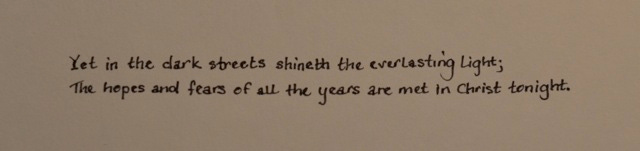 Yet in the dark streets shineth the everlasting Light;
The hopes and fears of all the years are met in Christ tonight.